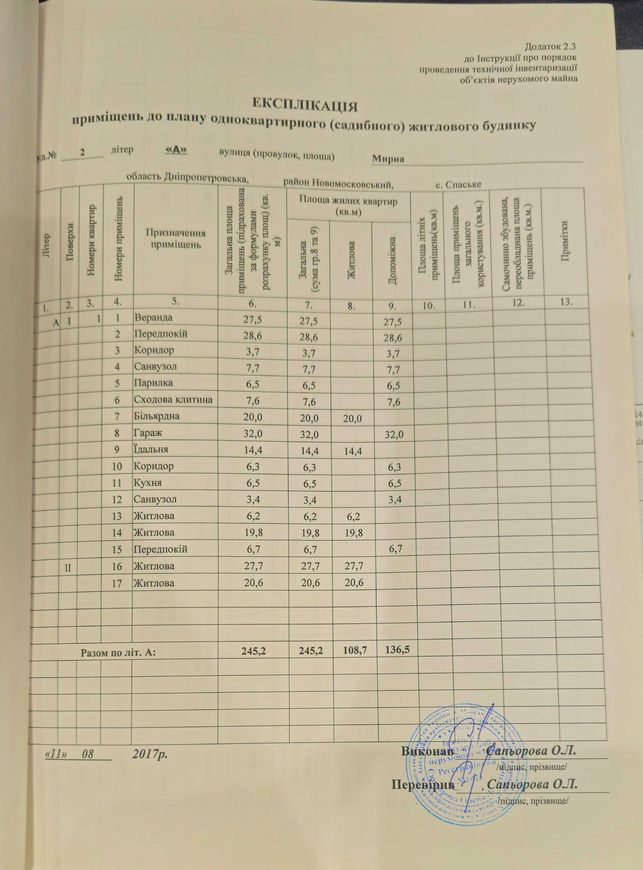 Додаток 2.3
до Інструкції про порядок
проведення технічної інвентаризації
об'єктів нерухомого майна
ЕКСПЛІКАЦІЯ
приміщень до плану одноквартирного (садибного) житлового будинку
уд.№ 2 літер «А» вулиця (провулок, площа) Мирна
область Дніпропетровська, район Новомосковський, с. Спаське
Літер
Поверхи
Номери квартир
Номери приміщень
Призначення
приміщень
Загальна площа
приміщень (підрахована
за формулами
розрахунку площ) (кв.
м)
Площа жилих квартир
(кв.м)
Загальна
(сума гр.8 та 9)
Житлова
Допоміжна
Площа літніх
приміщень(кв.м)
Площа приміщень
загального
користування (кв.м.)
Самочинно збудована,
переобладнана площа
приміщень (кв.м.)
Примітки
1. 2. 3. 4. 5. 6. 7. 8. 9. 10. 11. 12. 13.
А І 1 1 Веранда 27,5 27,5 27,5
2 Передпокій 28,6 28,6 28,6
3 Коридор 3,7 3,7 3,7
4 Санвузол 7,7 7,7 7,7
5 Парилка 6,5 6,5 6,5
6 Сходова клитина 7,6 7,6 7,6
7 Більярдна 20,0 20,0 20,0
8 Гараж 32,0 32,0 32,0
9 Їдальня 14,4 14,4 14,4
10 Коридор 6,3 6,3 6,3
11 Кухня 6,5 6,5 6,5
12 Санвузол 3,4 3,4 3,4
13 Житлова 6,2 6,2 6,2
14 Житлова 19,8 19,8 19,8
15 Передпокій 6,7 6,7 6,7
ІІ 16 Житлова 27,7 27,7 27,7
17 Житлова 20,6 20,6 20,6
Разом по літ. А: 245,2 245,2 108,7 136,5
«11» 08 2017р.
Виконав Сапьорова О.Л.
/підпис, прізвище/
Перевірив Сапьорова О.Л.
/підпис, прізвище/